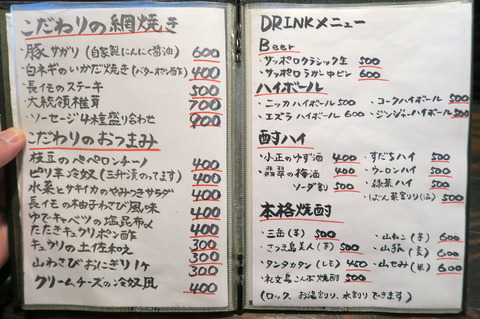 こだわりの網焼き
・豚サガリ(自家製にんにく醤油) 600
・白ネギのいかだ焼き(バターポン酢) 400
・長イモのステーキ 500
・大統領椎茸 700
・ソーセージ4種盛り合わせ 900
こだわりのおつまみ
枝豆のペペロンチーノ 400
ピリ辛冷奴(三升漬のってます) 400
水菜とサキイカのやみつきサラダ 400
長イモの柚子わさび風味 400
ゆでキャベツの塩昆布〆 400
たたきキュウリポン酢 400
キュウリの土佐和え 300
山わさびおにぎり1ケ 300
クリームチーズの冷奴風 400
DRINKメニュー
Beer
・サッポロクラシック生 500
・サッポロラガー中ビン 600
ハイボール
・ニッカハイボール 500 ・コークハイボール 500
・エズラハイボール 600 ・ジンジャーハイボール 500
酎ハイ
・小正のゆず酒 400 ・すだちハイ 500
・翡翠の梅酒 400 ・ウーロンハイ 500
ソーダ割り 500 ・緑茶ハイ 500
本格焼酎
・三岳(芋) 500 ・山ねこ(芋) 600
・さつま島美人(芋) 500 ・山猿(麦) 600
・タンタカタン(しそ) 450 ・山せみ(米) 600
・礼文島こんぶ焼酎 500
(ロック、お湯割り、水割りできます)